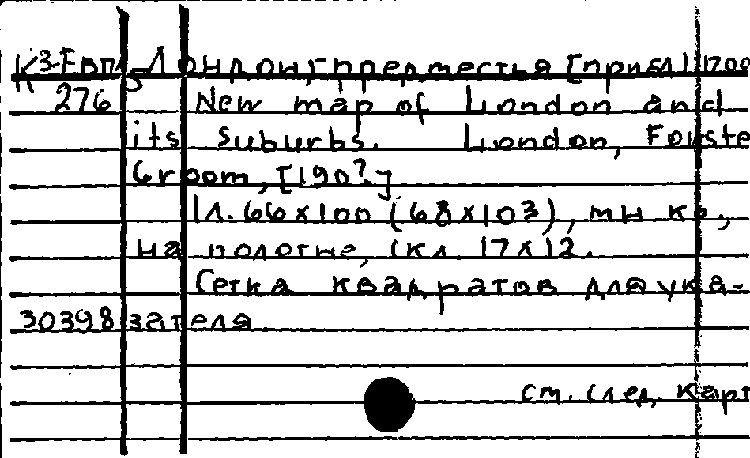 К3-Евп 5 Лондон, предместья [прибл] 1:700
276 New map of London and
its Suburbs. London, Forste
Groom, [190?]
1 л. 66x100 (68x103), мн кр,
на полотне, скл. 17x12.
Сетка квадратов для ука-
30398 зателя.
см. след. карт